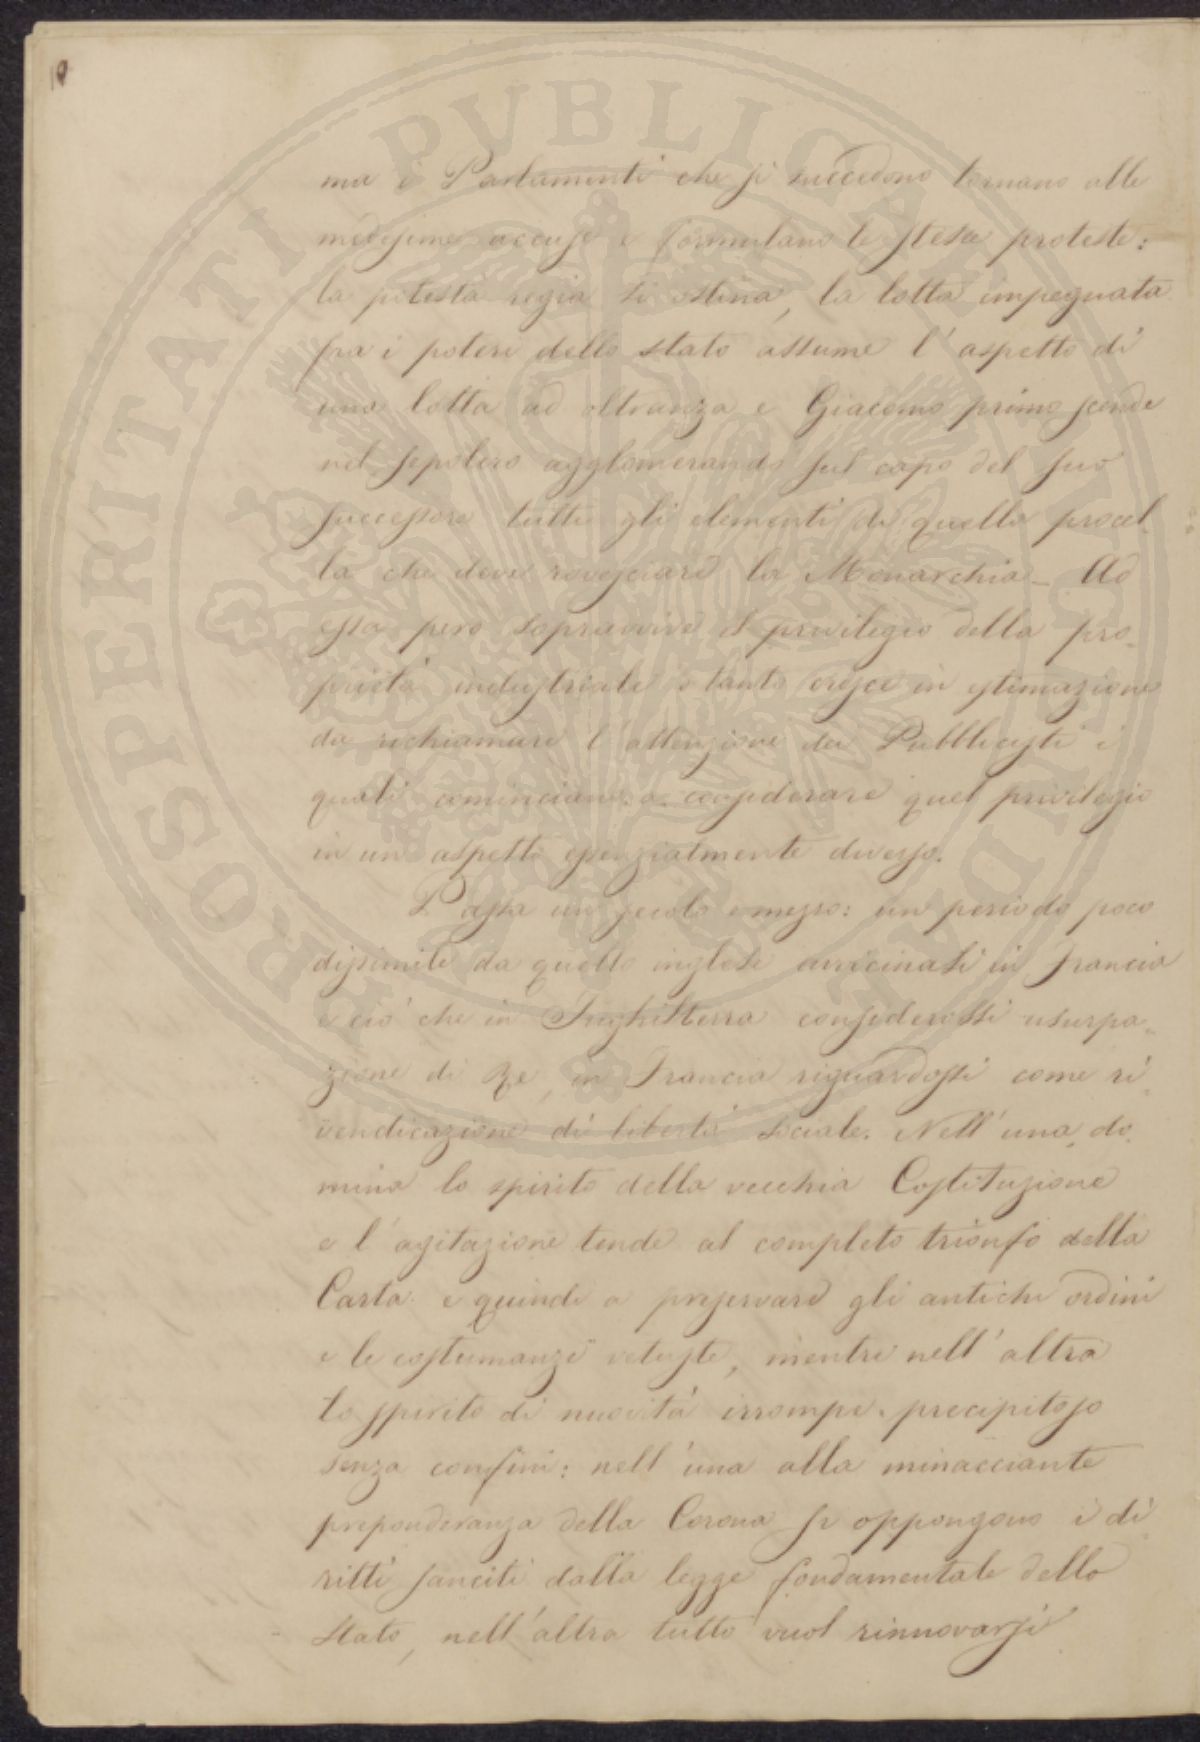 ma i Parlamenti che si succedono tornano alle
medesime accuse e formulano le stesse proteste:
la potestà regia si ostina, la lotta impegnata
fra i poteri dello stato assume l'aspetto di
una lotta ad oltranza e Giacomo primo scende
nel sepolcro agglomerando sul capo del suo
successore tutti gli elementi di quella procel-
la che deve rovesciare la Monarchia_ Ad
essa però sopravvive il privilegio della pro-
prietà industriale e tanto cresce in estimazione
da richiamare l'attenzione dei Pubblicisti i
quali cominciano a considerare quel privilegio
in un aspetto essenzialmente diverso.
Passa un secolo e mezzo: un periodo poco
dissimile da quello inglese avvicinasi in Francia
e ciò che in Inghilterra considerossi usurpa-
zione di Re, in Francia riguardossi come ri-
vendicazione di libertà sociale. Nell'una do-
mina lo spirito della vecchia Costituzione
e l'agitazione tende al completo trionfo della
Carta e quindi a preservare gli antichi ordini
e le costumanze vetuste, mentre nell'altra
lo spirito di nuovità irrompe precipitoso
senza confini: nell'una alla minacciante
preponderanza della Corona si oppongono i di-
ritti sanciti dalla legge fondamentale dello
stato, nell'altra tutto vuol rinnovarsi
PROSPERITATI PVBLICAE